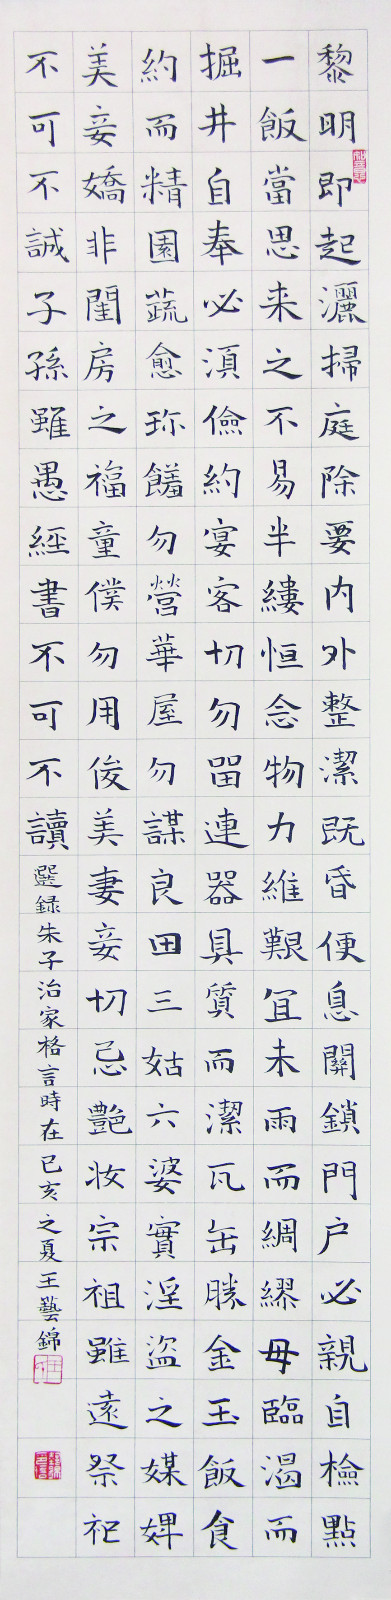 黎明即起灑掃庭除要内外整潔既昏便息關鎖門户必親自檢點
一飯當思来之不易半縷恒念物力維艱宜未雨而綢繆毋臨渴而
掘井自奉必湏儉約宴客切勿留連器具質而潔瓦缶勝金玉飯食
約而精園蔬愈珎饈勿營華屋勿謀良田三姑六婆實淫盜之媒婢
美妾嬌非閨房之福童僕勿用俊美妻妾切忌艷妆宗祖雖遠祭祀
不可不誠子孫雖愚經書不可不讀選録朱子治家格言時在己亥之夏王藝錦